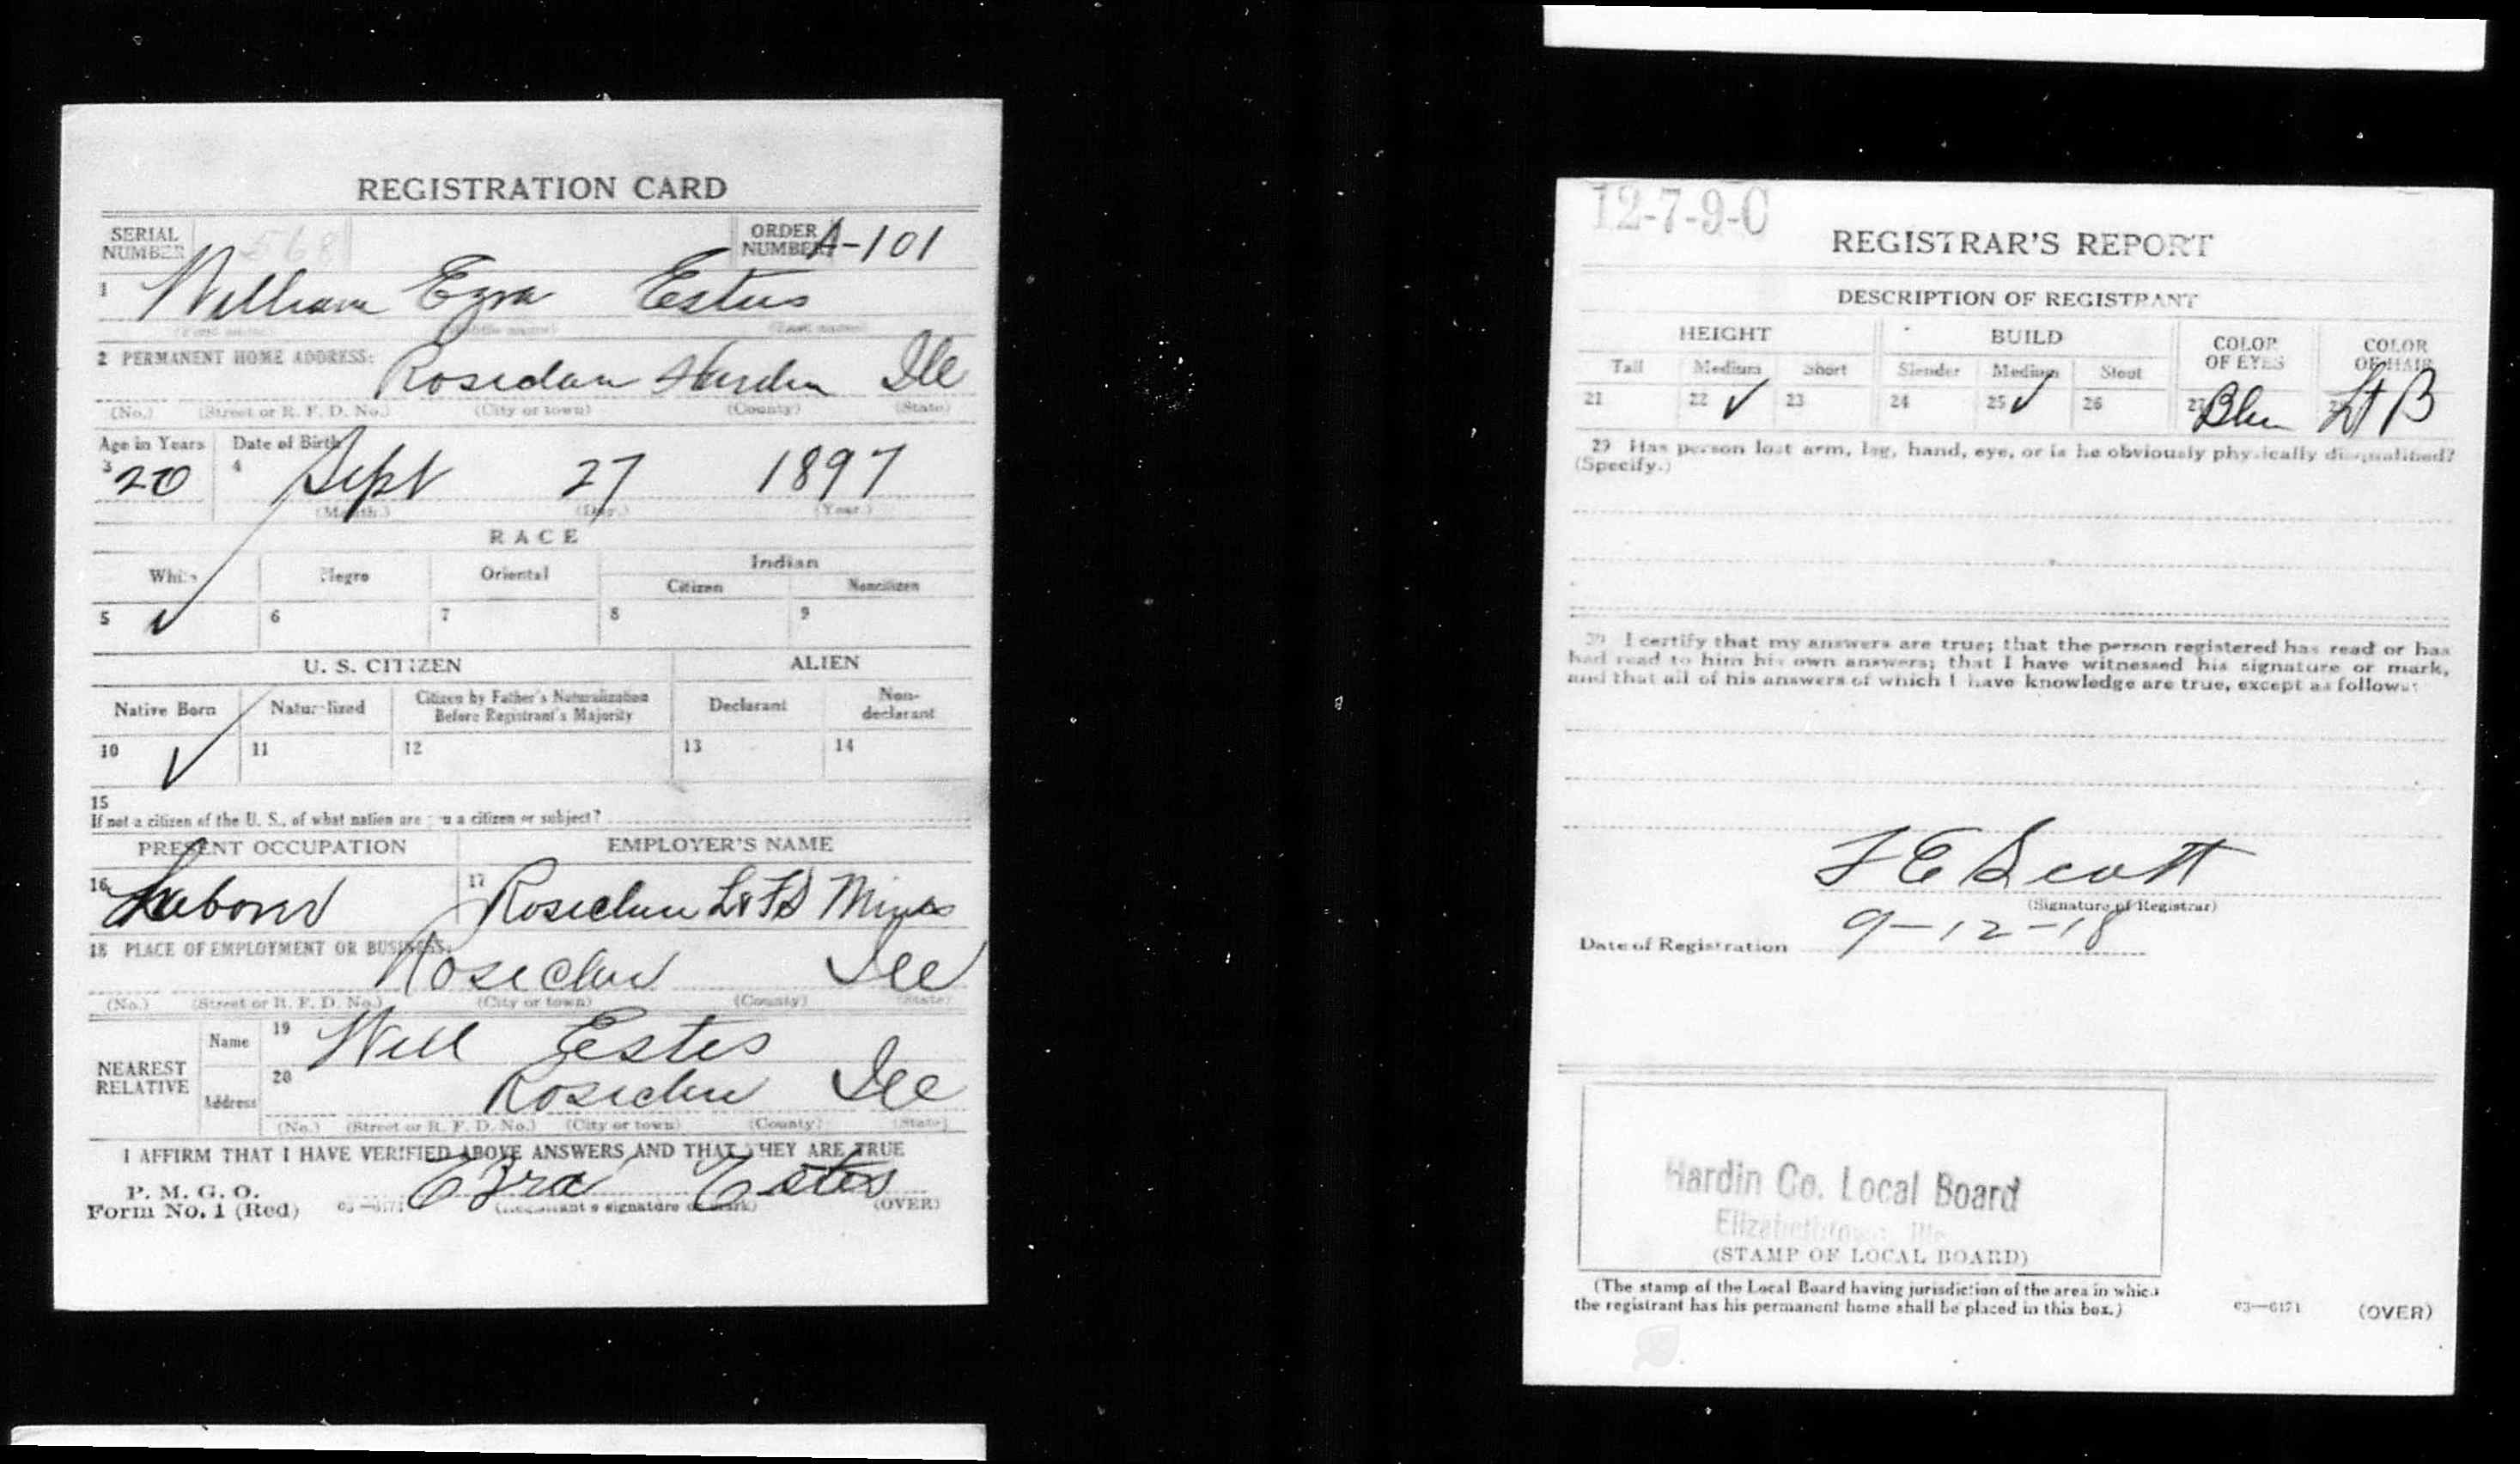 REGISTRATION CARD
SERIAL NUMBER 568 ORDER NUMBER A-101
1 William Ezra Estes
(First name) (Middle name) (Last name)
2 PERMANENT HOME ADDRESS:
Rosiclare Hardin Ill
(No.) (Street or R. F. D. No.) (City or town) (County) (State)
Age in Years Date of Birth
3 20 4 Sept 27 1897
(Month.) (Day.) (Year.)
RACE
White Negro Oriental Indian
Citizen Noncitizen
5 ✓ 6 7 8 9
U. S. CITIZEN ALIEN
Native Born Naturalized Citizen by Father's Naturalization Before Registrant's Majority Declarant Non-declarant
10 ✓ 11 12 13 14
15
If not a citizen of the U. S., of what nation are you a citizen or subject?
PRESENT OCCUPATION EMPLOYER'S NAME
16 Laborer 17 Rosiclare L & F S Mines
18 PLACE OF EMPLOYMENT OR BUSINESS:
Rosiclare Ill
(No.) (Street or R. F. D. No.) (City or town) (County) (State)
NEAREST RELATIVE
Name 19 Will Estes
Address 20 Rosiclare Ill
(No.) (Street or R. F. D. No.) (City or town) (County) (State)
I AFFIRM THAT I HAVE VERIFIED ABOVE ANSWERS AND THAT THEY ARE TRUE
P. M. G. O.
Form No. 1 (Red) 03—6171 Ezra Estes
(Registrant's signature or mark) (OVER)
12-7-9-C
REGISTRAR'S REPORT
DESCRIPTION OF REGISTRANT
HEIGHT BUILD COLOR OF EYES COLOR OF HAIR
Tall Medium Short Slender Medium Stout
21 22 ✓ 23 24 25 ✓ 26 27 Blue Lt B
29 Has person lost arm, leg, hand, eye, or is he obviously physically disqualified?
(Specify.)
30 I certify that my answers are true; that the person registered has read or has
had read to him his own answers; that I have witnessed his signature or mark,
and that all of his answers of which I have knowledge are true, except as follows:
F E Scott
(Signature of Registrar)
Date of Registration 9-12-18
Hardin Co. Local Board
Elizabethtown, Ills
(STAMP OF LOCAL BOARD)
(The stamp of the Local Board having jurisdiction of the area in which
the registrant has his permanent home shall be placed in this box.)
03—6171 (OVER)